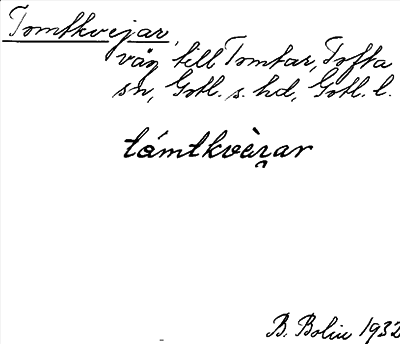 Tomtkvejar,
väg till Tomtar, Tofta
sn, Gotl. s. hd, Gotl. l.
tómtkvèɪ̯ar
B. Bolin 1932